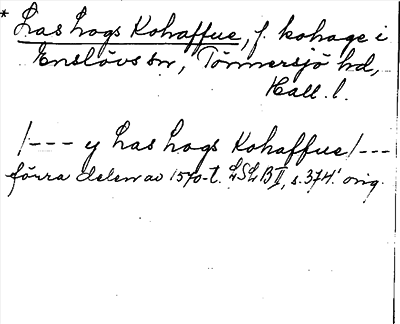 * Las Logs Kohaffue, f. kohage i
Enslövs sn, Tönnersjö hd,
Hall. l.
/--- y Las Logs Kohaffue/---
förra delen av 1570-t. LSLB II, s. 374! orig.